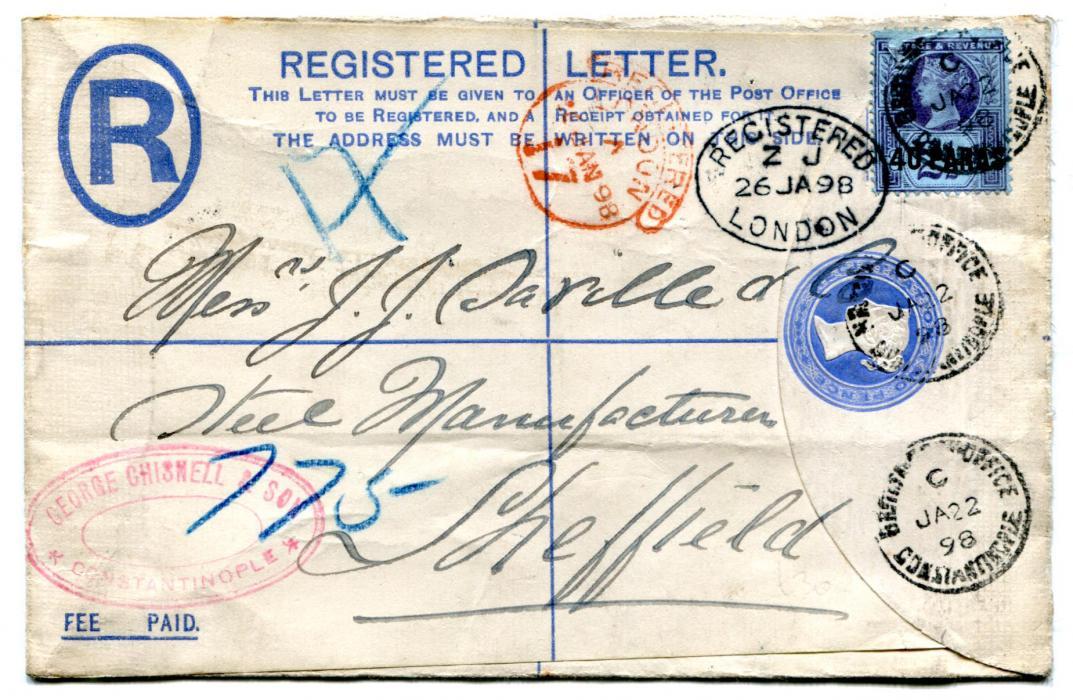 R
REGISTERED LETTER.
THIS LETTER MUST BE GIVEN TO AN OFFICER OF THE POST OFFICE
TO BE REGISTERED, AND A RECEIPT OBTAINED FOR IT.
THE ADDRESS MUST BE WRITTEN ON SIDE.
POSTAGE & REVENUE
40 PARAS
REGISTERED
Z J
26 JA 98
LONDON
REGISTERED
LONDON
JAN 98
Messrs J. J. Saville & Co
Steel Manufacturers
Sheffield
775
GEORGE CHISNELL & SON
CONSTANTINOPLE
BRITISH POST OFFICE
C
JA 22
98
CONSTANTINOPLE
FEE PAID.